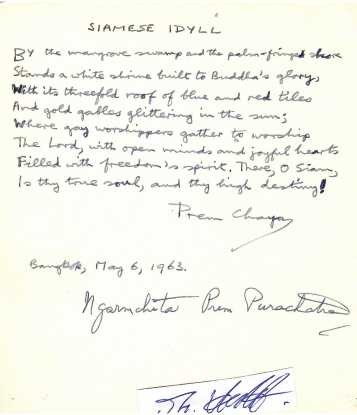 SIAMESE IDYLL
By the mangrove swamp and the palm-fringed shore
Stands a white shrine built to Buddha's glory,
With its threefold roof of blue and red tiles
And gold gables glittering in the sun;
Where gay worshippers gather to worship
The Lord, with open minds and joyful hearts
Filled with freedom's spirit. There, O Siam,
Is thy true soul, and thy high destiny!
Prem Chaya
Bangkok, May 6, 1963.
Ngarmchita Prem Purachatra
Th.